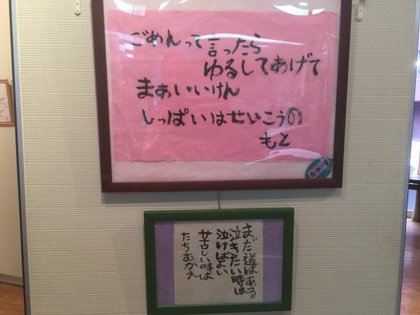 ごめんって言ったら
ゆるしてあげて
まぁいいけん
しっぱいはせいこうの
もと
まだ道はある
泣きたい時は
泣けばよい
苦しい時は
たちむかえ